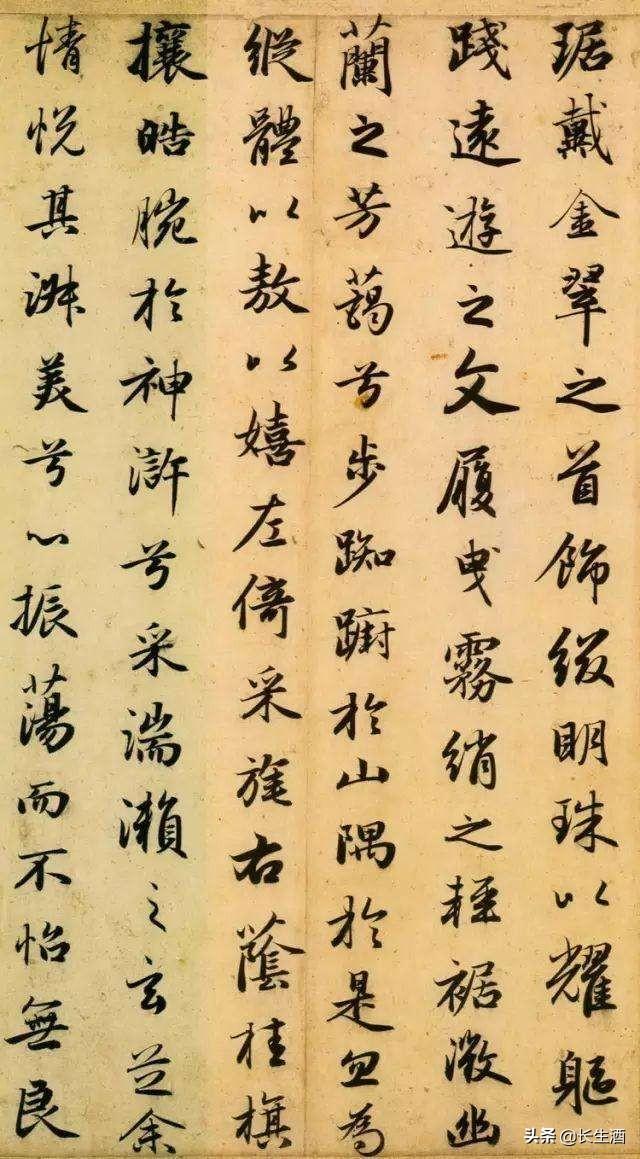 琚戴金翠之首飾綴明珠以耀軀
踐遠遊之文履曳霧綃之輕裾微幽
蘭之芳藹兮步踟躕於山隅於是忽焉
縱體以敖以嬉左倚采旄右蔭桂旗
攘皓腕於神滸兮采湍瀨之玄芝余
情悅其淑美兮心振蕩而不怡無良
头条 @长生酒